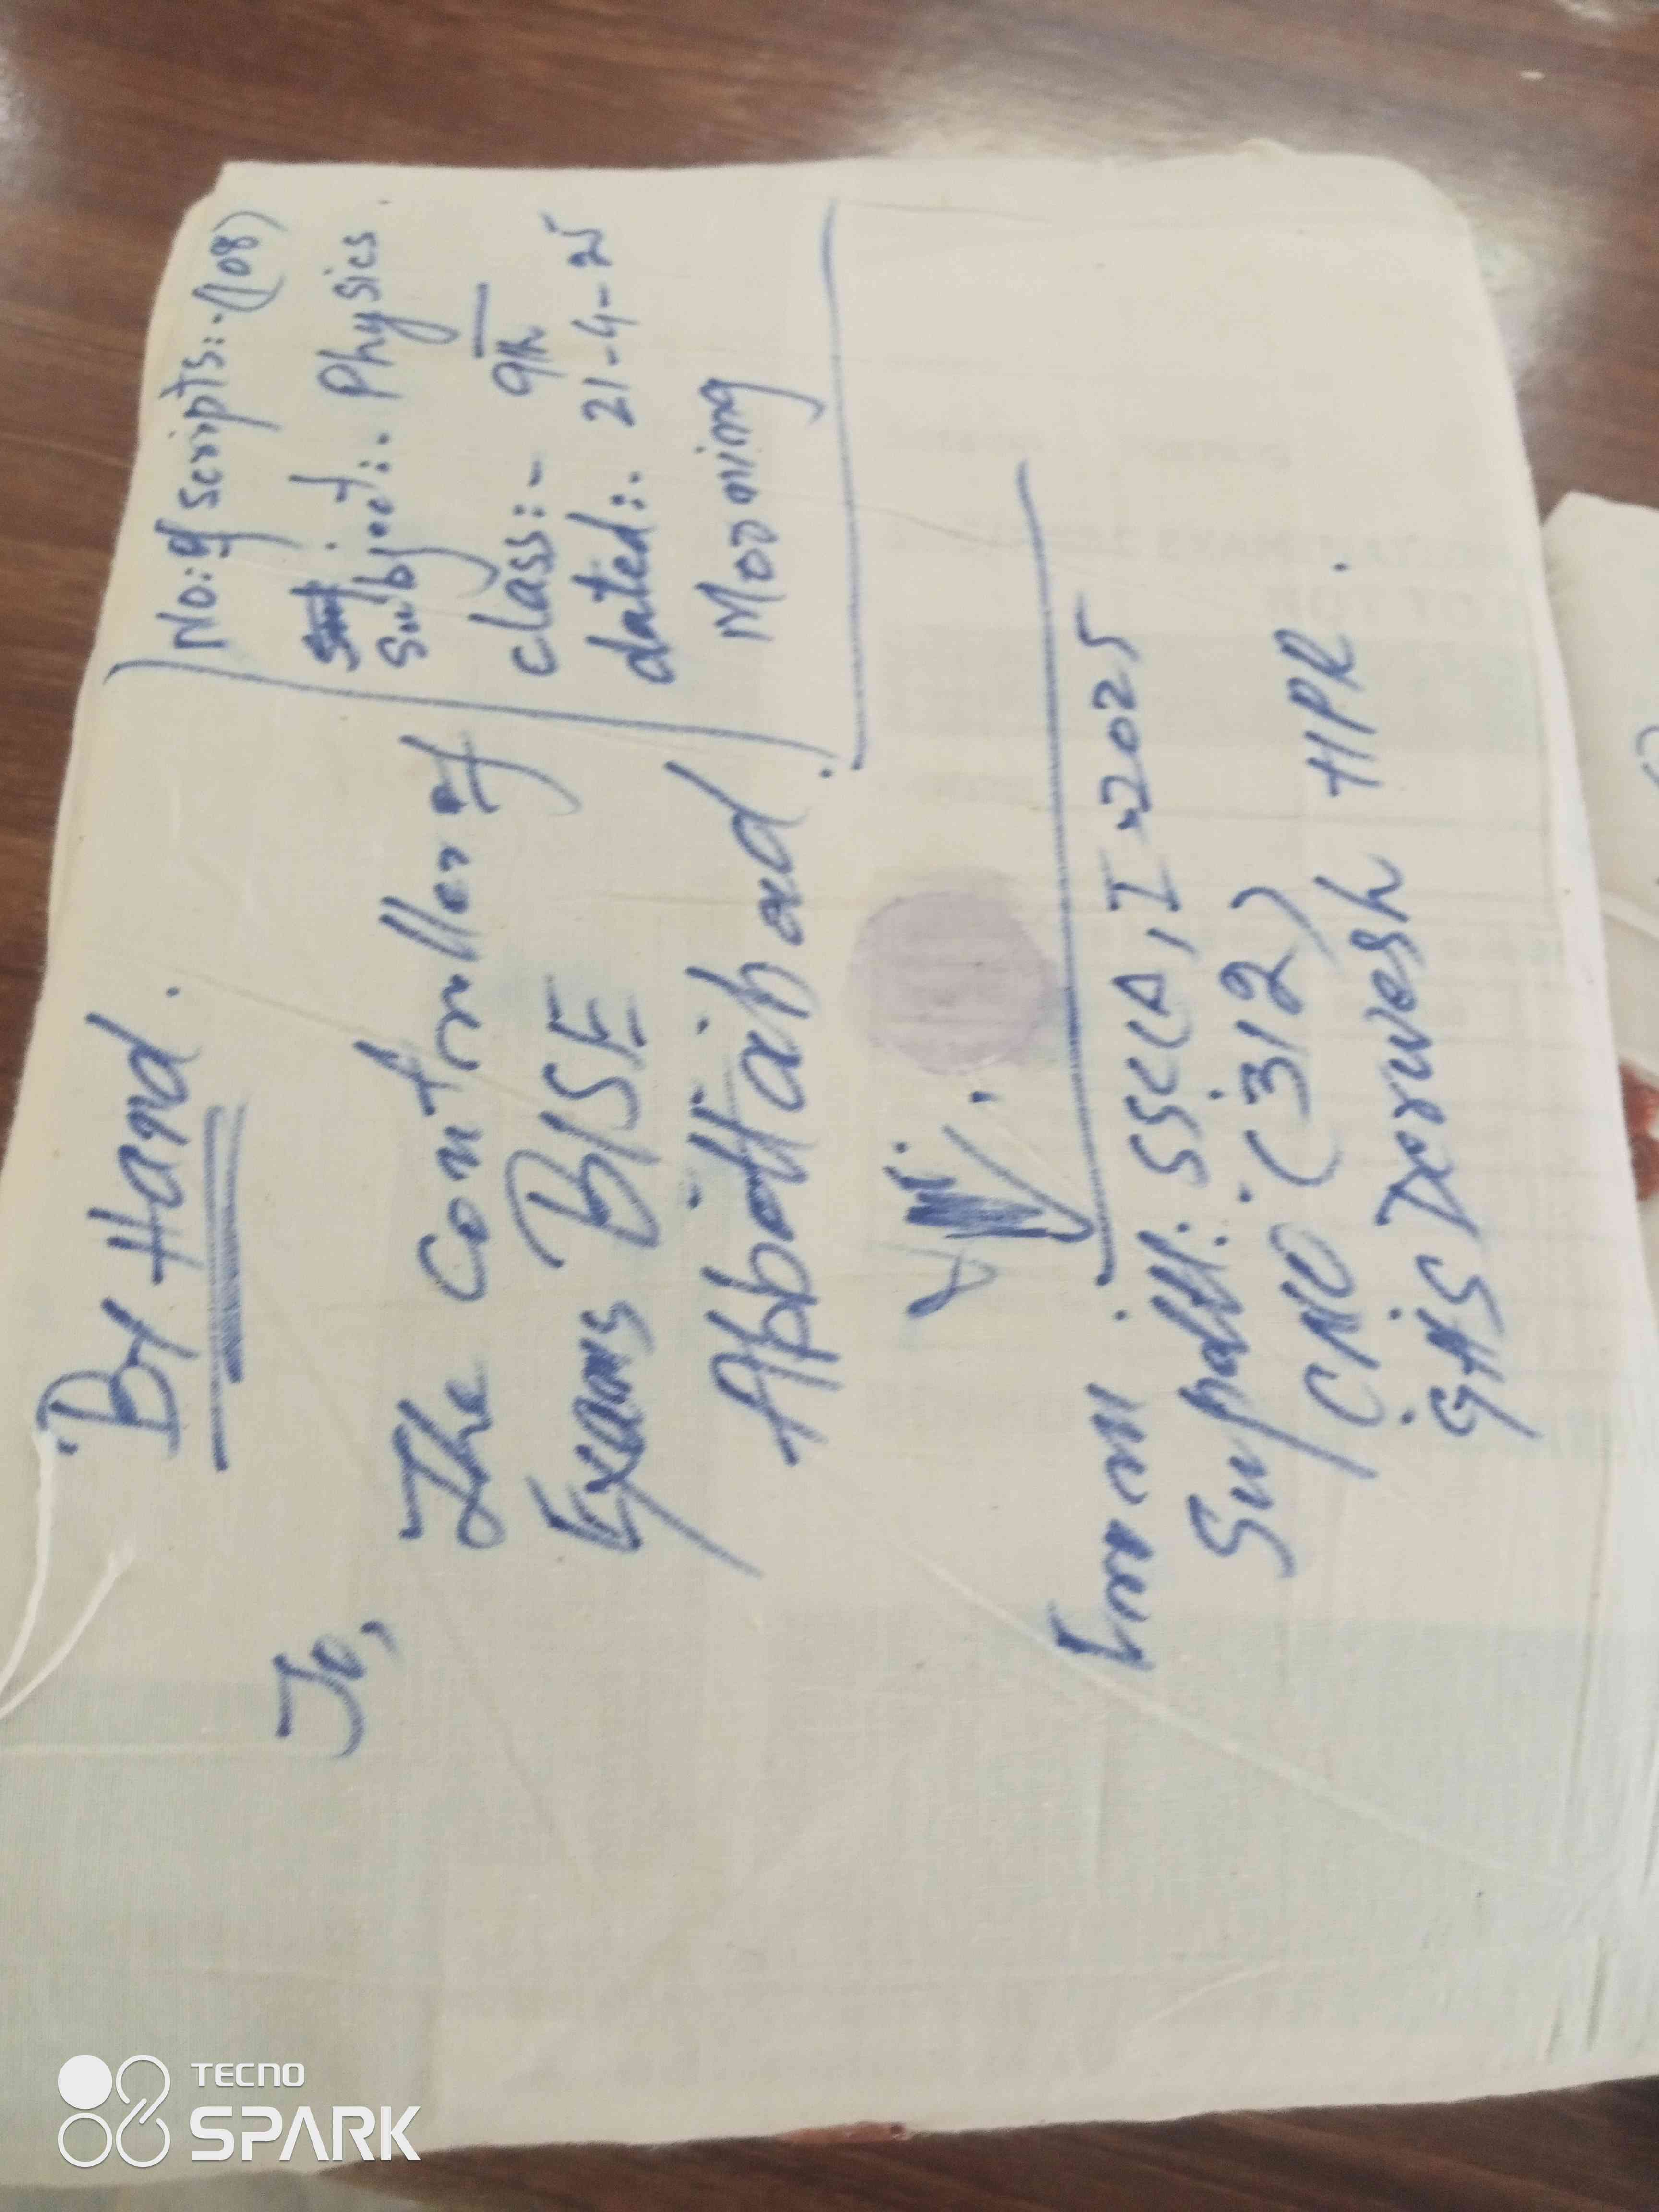 By Hand.
No: of scripts:-(108)
Subject:- Physics
class:- 9th
dated:- 21-4-25
Morning
To,
The Controller of
Exams BISE
Abbottabad.
From: Supdtt: SSC(A), I-2025
CNO (312)
GHS Derwesh HPR.
TECNO
SPARK